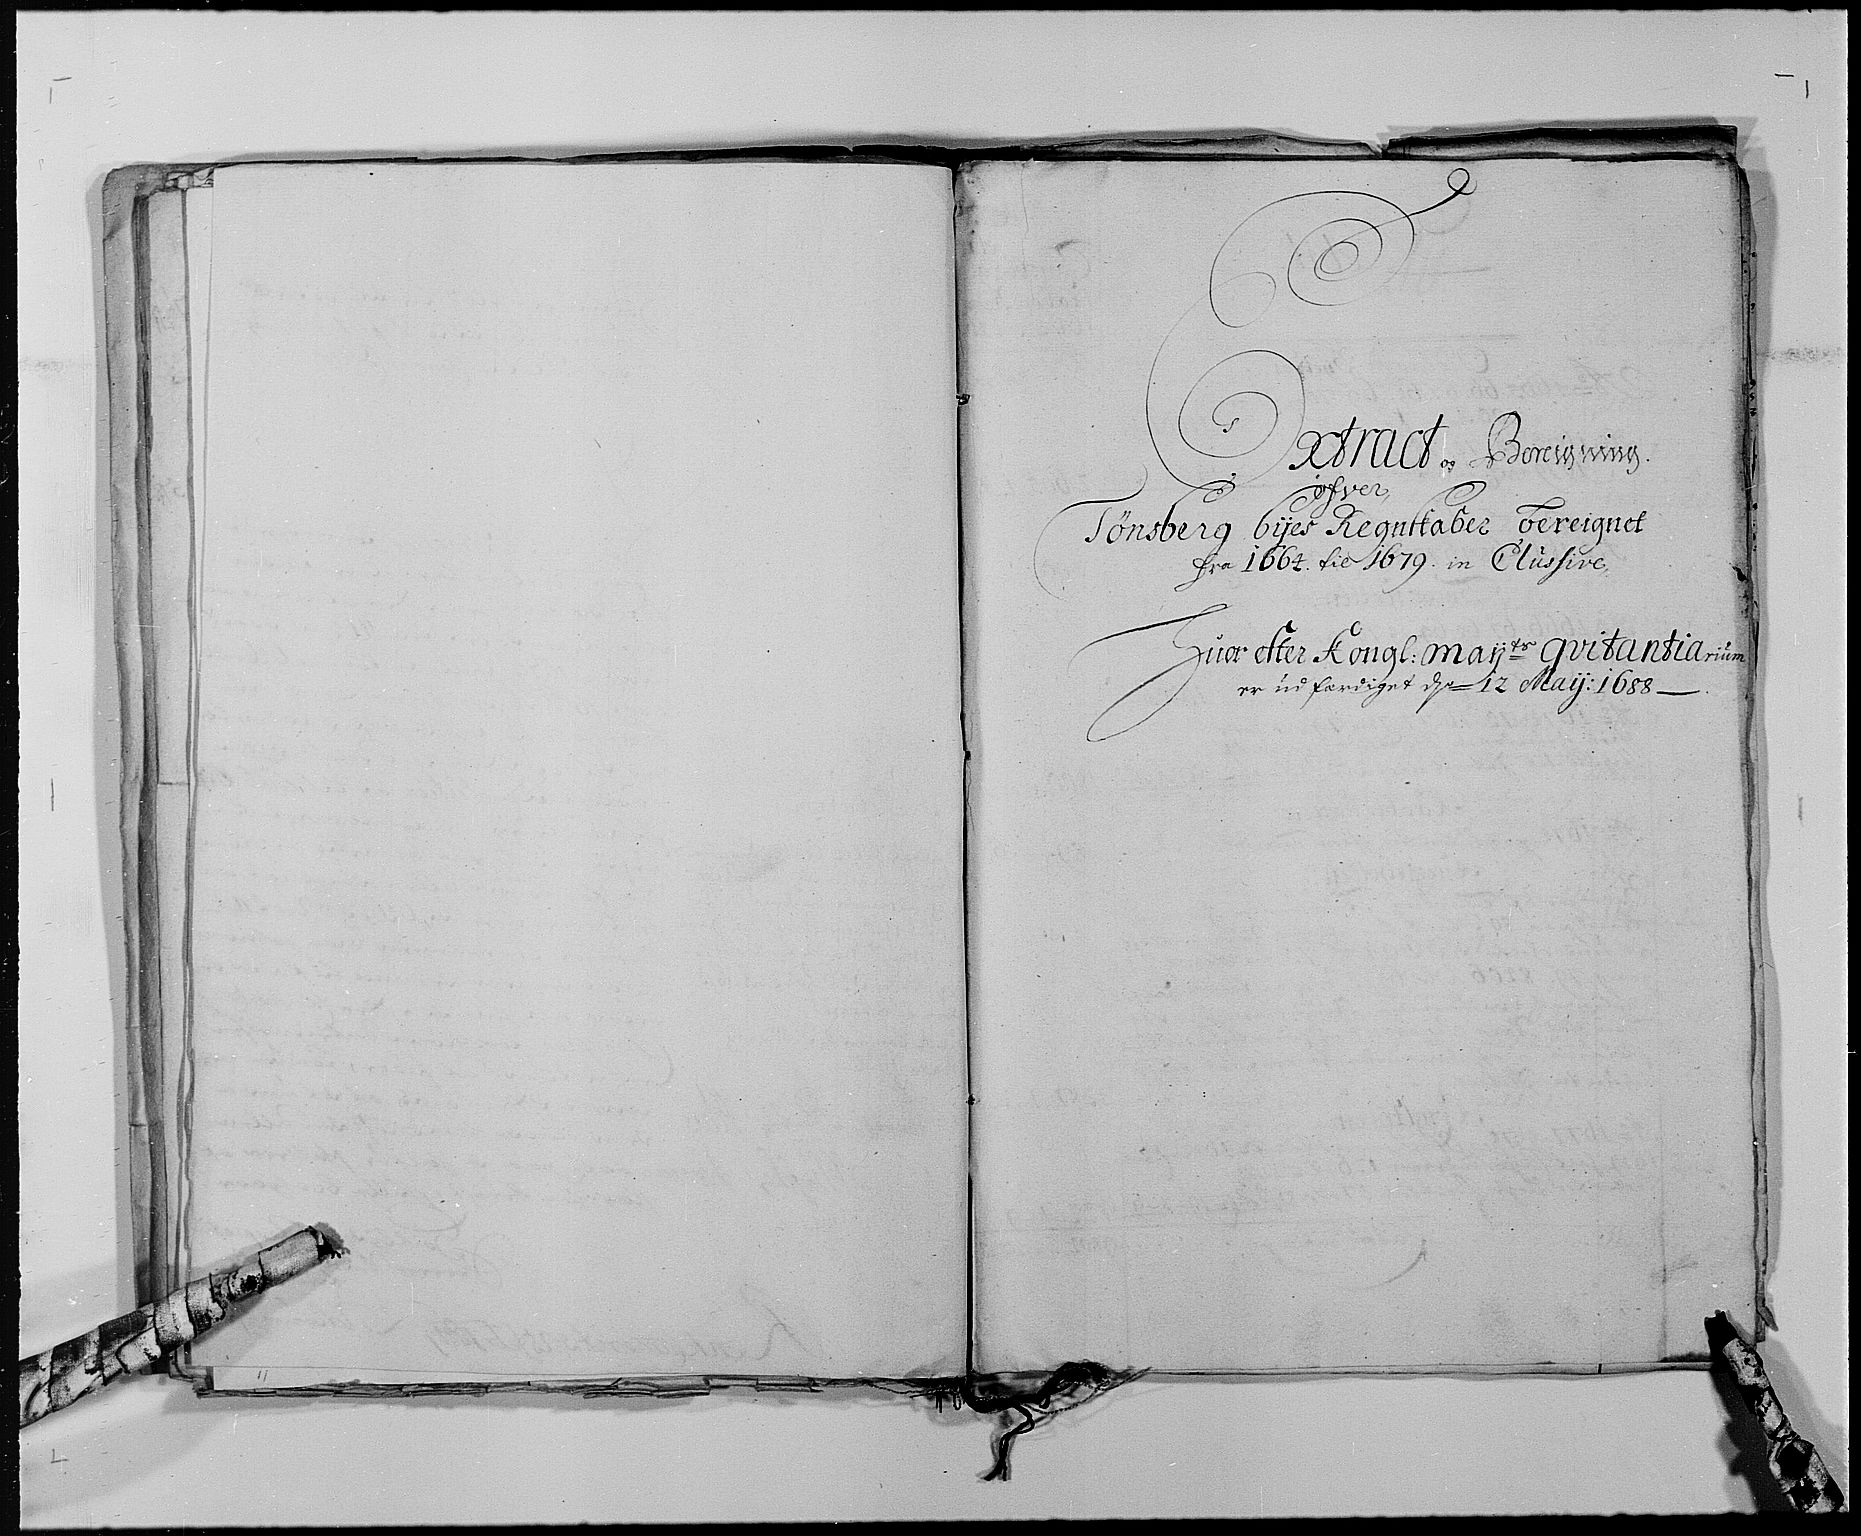 Extract og Bereigning.
ofver,
Tönsberg byes Regnskaber bereignet
fra 1664. til 1679. in Clüssive,
Huor effter Kongl: Mayts qvitantiarium
er üdfærdiget dn 12 Maij: 1688